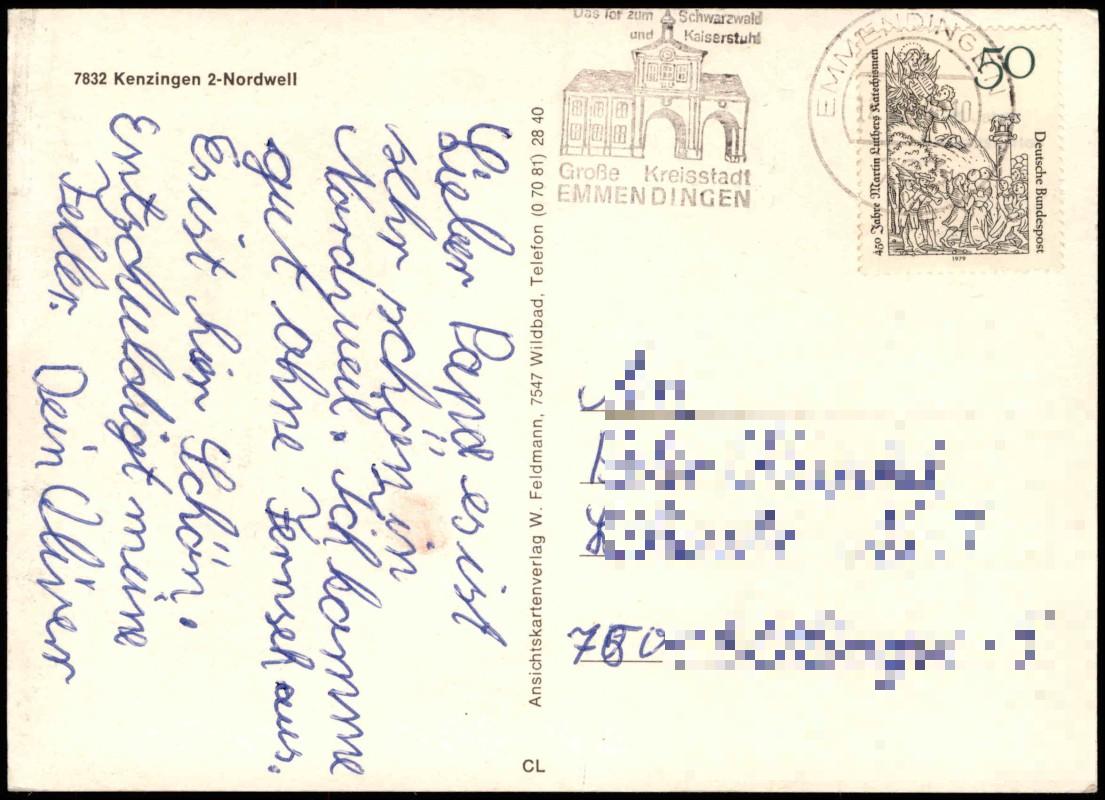 7832 Kenzingen 2-Nordwell
Lieber Papa es ist
sehr schön in
Nordweil. Ich komme
gut ohne Fernseh aus.
Es ist hir Schön.
Entschuldigt meine
Feller. Dein Oliver
Ansichtskartenverlag W. Feldmann, 7547 Wildbad, Telefon (0 70 81) 28 40
CL
Das Tor zum Schwarzwald
und Kaiserstuhl
Große Kreisstadt
EMMENDINGEN
EMMENDINGEN
50
450 Jahre Martin Luthers Katechismen
Deutsche Bundespost
1979